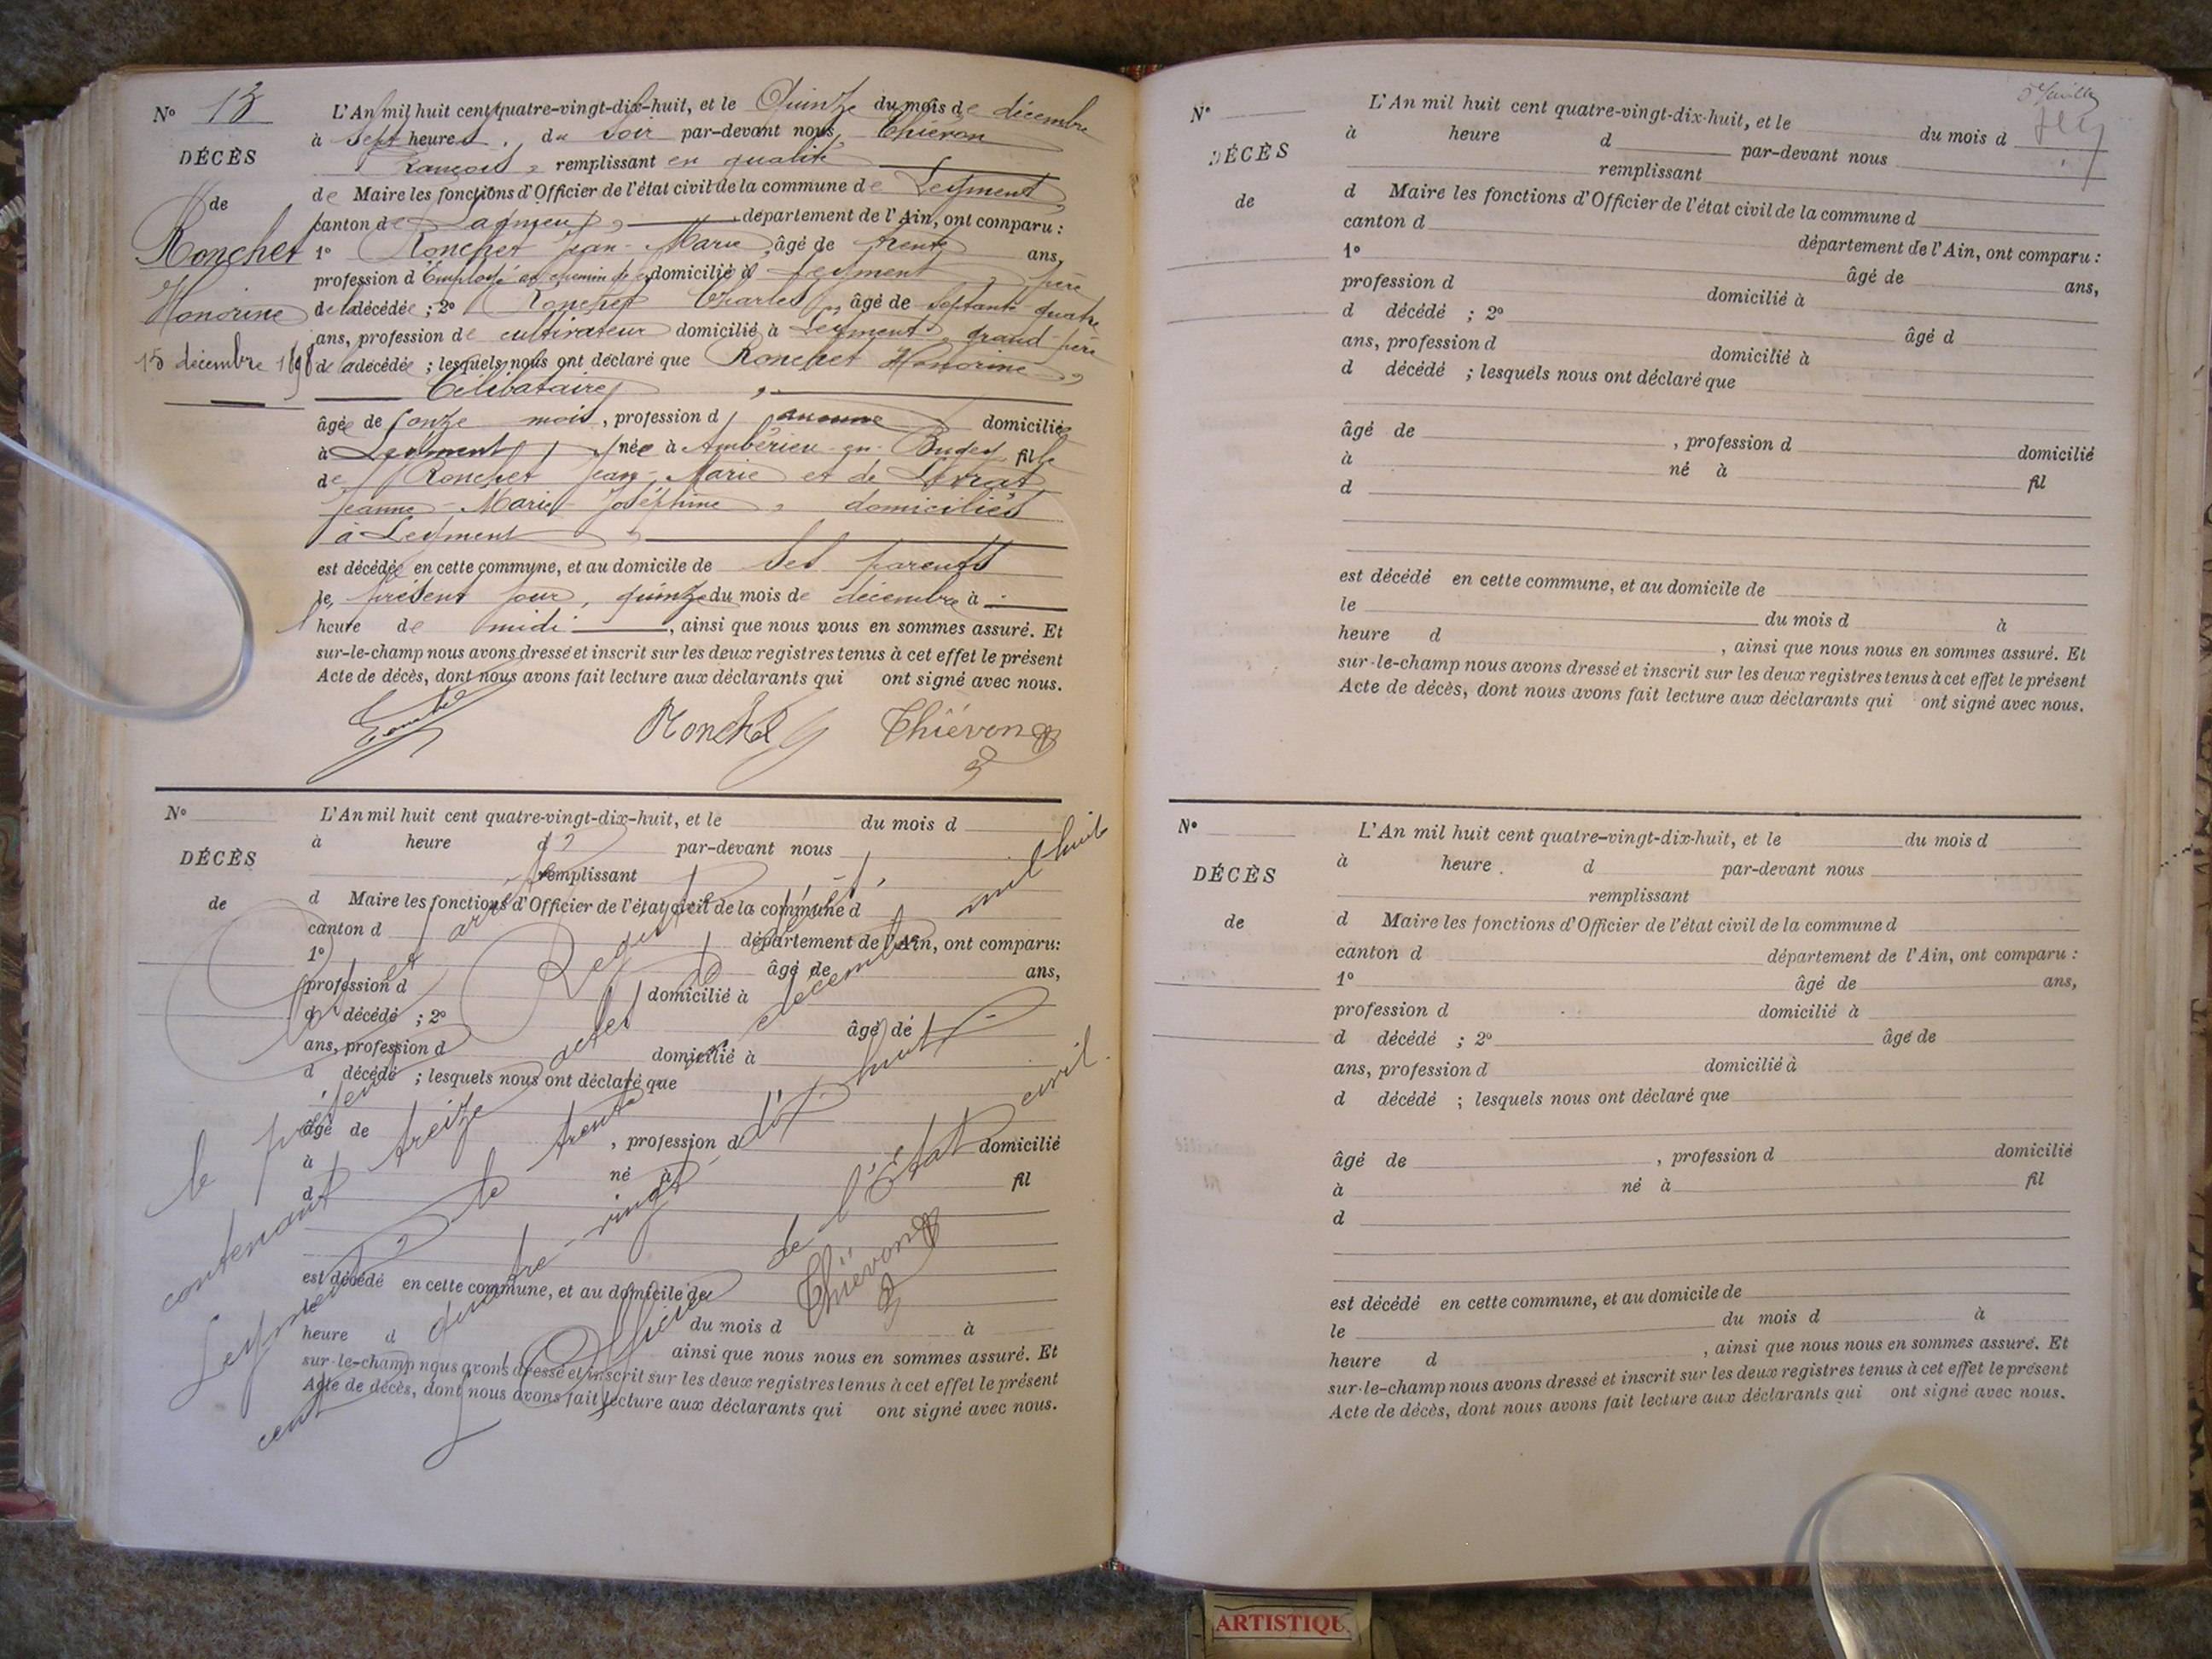 No 13
DÉCÈS
de
Ronchet
Honorine
15 décembre 1898
L'An mil huit cent quatre-vingt-dix-huit, et le Quinze du mois de décembre
à sept heures, du soir par-devant nous, Thiévon
François, remplissant en qualité
de Maire les fonctions d'Officier de l'état civil de la commune de Leyment,
canton de Lagnieu, département de l'Ain, ont comparu :
1o Ronchet Jean-Marie, âgé de trente ans,
profession d'Employé au chemin de fer domicilié à Leyment, père
de la décédée ; 2o Ronchet Charles, âgé de septante-quatre
ans, profession de cultivateur domicilié à Leyment, grand-père
de la décédée ; lesquels nous ont déclaré que Ronchet Honorine,
Célibataire,
âgée de onze mois, profession d aucune domiciliée
à Leyment, née à Ambérieu-en-Bugey fille
de Ronchet Jean-Marie et de Livrat
Jeanne-Marie-Joséphine, domiciliés
à Leyment,
est décédée en cette commune, et au domicile de ses parents
le présent jour, quinze du mois de décembre à
heure de midi, ainsi que nous nous en sommes assuré. Et
sur-le-champ nous avons dressé et inscrit sur les deux registres tenus à cet effet le présent
Acte de décès, dont nous avons fait lecture aux déclarants qui ont signé avec nous.
Ronchet Thiévon
No
DÉCÈS
de
L'An mil huit cent quatre-vingt-dix-huit, et le du mois d
à heure d par-devant nous
remplissant
d Maire les fonctions d'Officier de l'état civil de la commune d
canton d département de l'Ain, ont comparu:
1o âgé de ans,
profession d domicilié à
d décédé ; 2o âgé de
ans, profession d domicilié à
d décédé ; lesquels nous ont déclaré que
âgé de , profession d domicilié
à né à fil
d
est décédé en cette commune, et au domicile de
le du mois d à
heure d ainsi que nous nous en sommes assuré. Et
sur-le-champ nous avons dressé et inscrit sur les deux registres tenus à cet effet le présent
Acte de décès, dont nous avons fait lecture aux déclarants qui ont signé avec nous.
Clos et arrêté
le présent Registre de décès,
contenant treize actes
Leyment, le trente et un décembre mil huit
cent quatre-vingt-dix-huit
l'Officier de l'État civil.
Thiévon
No
DÉCÈS
de
L'An mil huit cent quatre-vingt-dix-huit, et le du mois d
à heure d par-devant nous
remplissant
d Maire les fonctions d'Officier de l'état civil de la commune d
canton d département de l'Ain, ont comparu :
1o âgé de ans,
profession d domicilié à
d décédé ; 2o âgé d
ans, profession d domicilié à
d décédé ; lesquels nous ont déclaré que
âgé de , profession d domicilié
à né à fil
d
est décédé en cette commune, et au domicile de
le du mois d à
heure d , ainsi que nous nous en sommes assuré. Et
sur-le-champ nous avons dressé et inscrit sur les deux registres tenus à cet effet le présent
Acte de décès, dont nous avons fait lecture aux déclarants qui ont signé avec nous.
No
DÉCÈS
de
L'An mil huit cent quatre-vingt-dix-huit, et le du mois d
à heure d par-devant nous
remplissant
d Maire les fonctions d'Officier de l'état civil de la commune d
canton d département de l'Ain, ont comparu :
1o âgé de ans,
profession d domicilié à
d décédé ; 2o âgé de
ans, profession d domicilié à
d décédé ; lesquels nous ont déclaré que
âgé de , profession d domicilié
à né à fil
d
est décédé en cette commune, et au domicile de
le du mois d à
heure d , ainsi que nous nous en sommes assuré. Et
sur-le-champ nous avons dressé et inscrit sur les deux registres tenus à cet effet le présent
Acte de décès, dont nous avons fait lecture aux déclarants qui ont signé avec nous.
ARTISTIQU